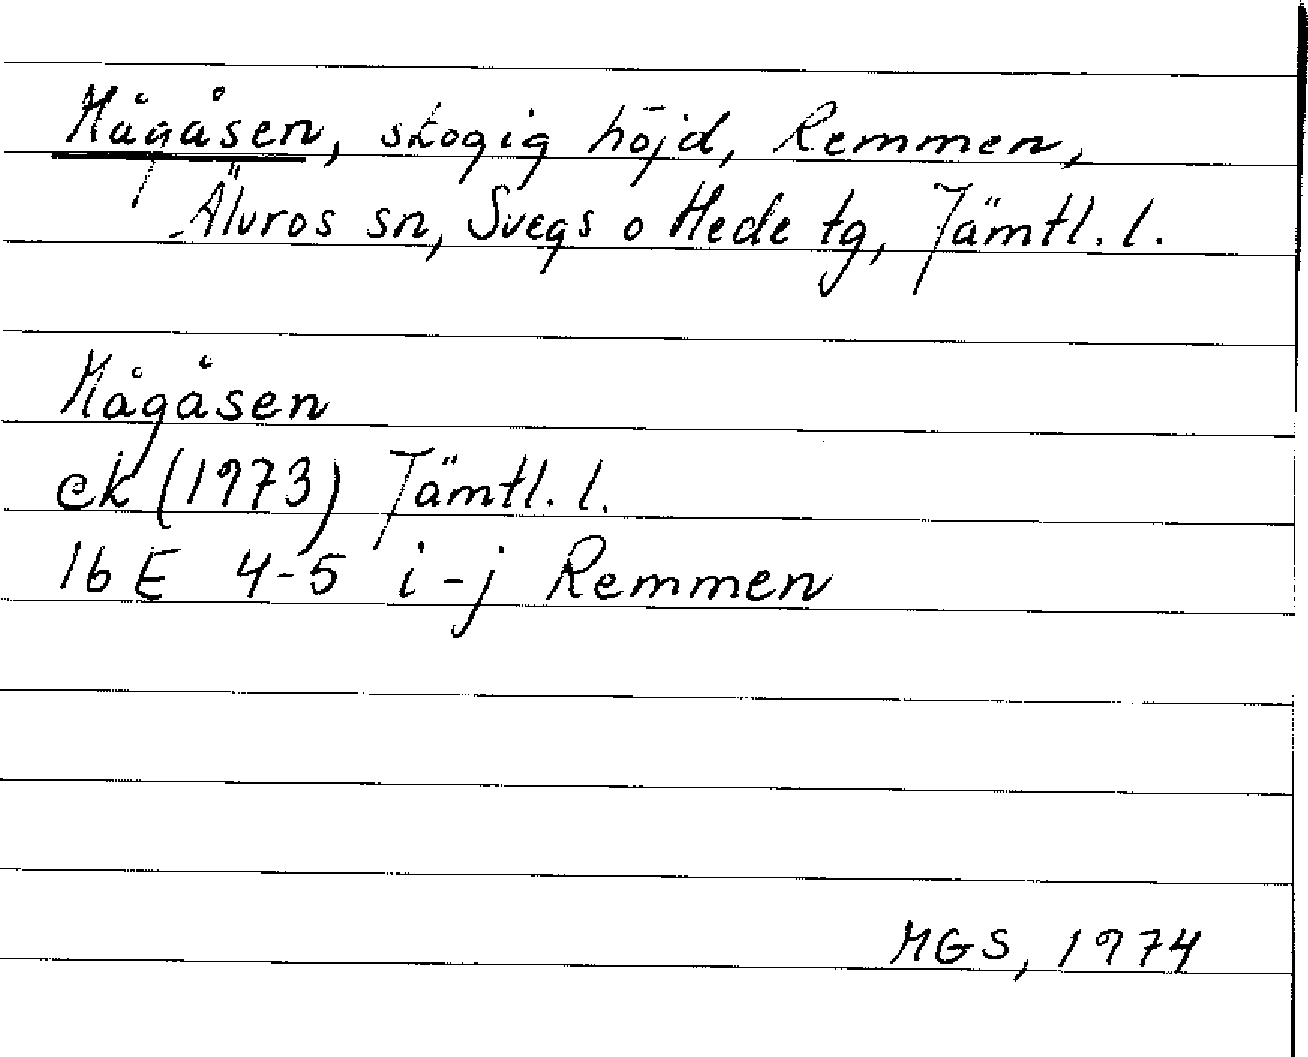 Mågåsen, skogig höjd, Remmen,
Älvros sn, Svegs o Hede tg, Jämtl. l.
Mågåsen
ek (1973) Jämtl. l.
16 E 4-5 i-j Remmen
MGS, 1974